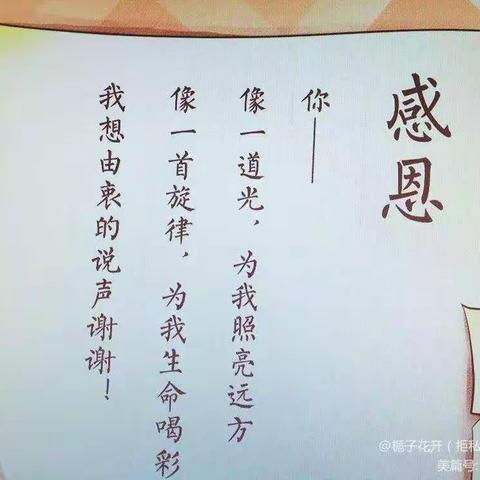 感恩
你——
像一道光，为我照亮远方
像一首旋律，为我生命喝彩
我想由衷的说声谢谢！
@栀子花开（拒私
美篇号：